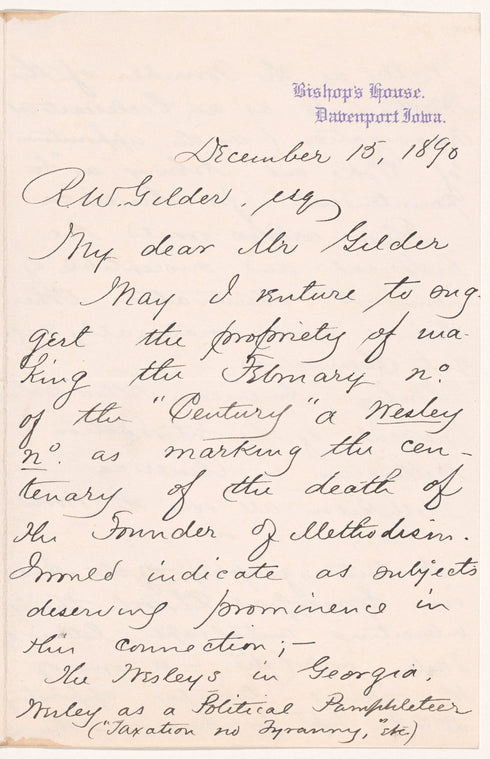 Bishop's House.
Davenport Iowa.
December 15, 1890
R. W. Gilder, esq
My dear Mr Gilder
May I venture to sug-
gest the propriety of ma-
king the February no.
of the "Century" a Wesley
no. as marking the cen-
tenary of the death of
the Founder of Methodism.
I would indicate as subjects
deserving prominence in
this connection;—
The Wesleys in Georgia.
Wesley as a Political Pamphleteer
("Taxation no Tyranny," etc)